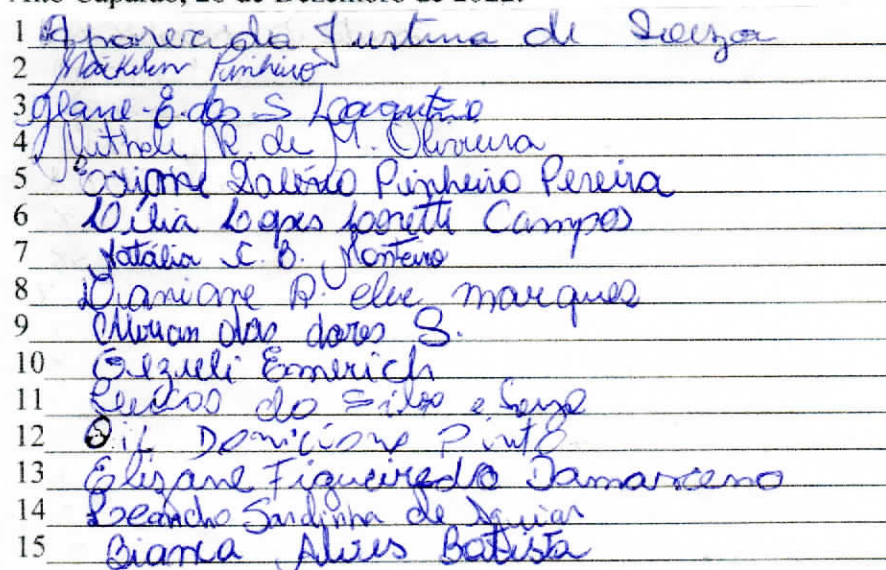 Alto Caparaó, 26 de Dezembro de 2022.
1 Aparecida Justina de Souza
2 Maikelen Pinheiro
3 Glane E. dos S
4 R. de M. Oliveira
5 Valério Pinheiro Pereira
6 Lília Lopes Campos
7 Natália C. B. Monteiro
8 Daniane R. marques
9 Mirian das dores S.
10 Gezieli Emerich
11 Lucas da Silva e Souza
12 Pinto
13 Elizane Figueiredo Damasceno
14 Leandro Sardinha de Aguiar
15 Bianca Alves Batista